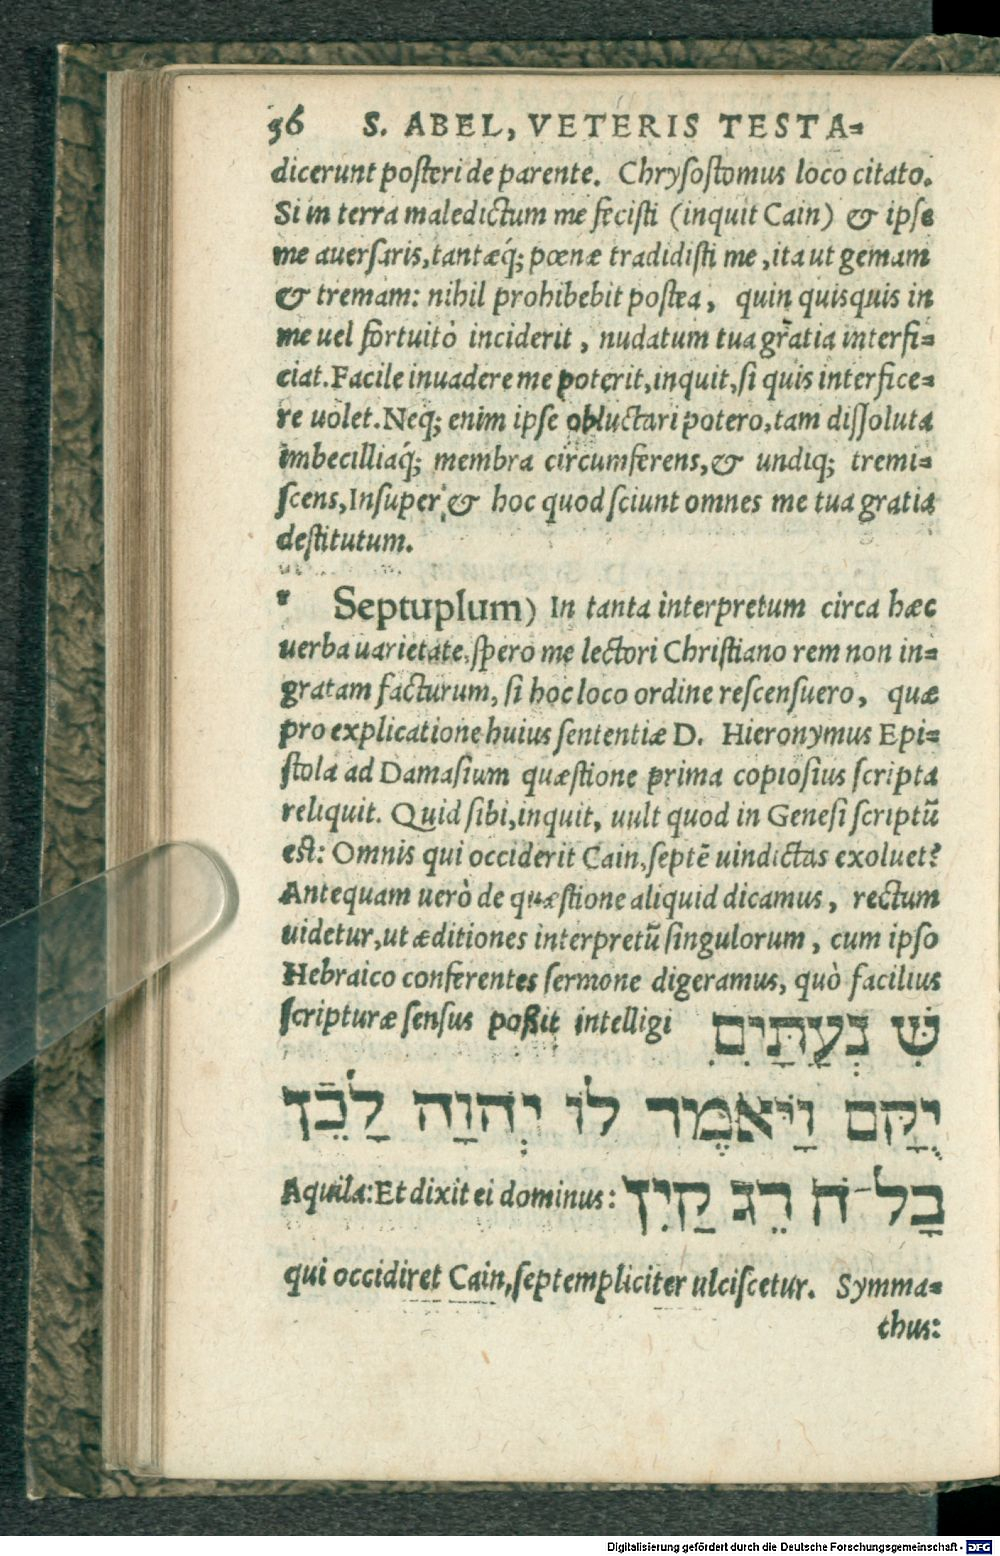 96 S. ABEL, VETERIS TESTA-
dicerunt posteri de parente. Chrysostomus loco citato.
Si in terra maledictum me fecisti (inquit Cain) & ipse
me auersaris, tantæq́; pœnæ tradidisti me, ita ut gemam
& tremam: nihil prohibebit postea, quin quisquis in
me uel fortuitò inciderit, nudatum tua gratia interfi-
ciat. Facile inuadere me poterit, inquit, si quis interfice-
re uolet. Neq; enim ipse obluctari potero, tam dissoluta
imbecilliaq́; membra circumferens, & undiq; tremi-
scens, Insuper & hoc quod sciunt omnes me tua gratia
destitutum.
Septuplum) In tanta interpretum circa hæc
uerba uarietate, spero me lectori Christiano rem non in-
gratam facturum, si hoc loco ordine rescensuero, quæ
pro explicatione huius sententiæ D. Hieronymus Epi-
stola ad Damasium quæstione prima copiosius scripta
reliquit. Quid sibi, inquit, uult quod in Genesi scriptũ
est: Omnis qui occiderit Cain, septẽ uindictas exoluet?
Antequam uerò de quæstione aliquid dicamus, rectum
uidetur, ut æditiones interpretũ singulorum, cum ipso
Hebraico conferentes sermone digeramus, quò facilius
scripturæ sensus poßit intelligi שִׁ נְעָתָּיִם
יֻקַּם וַיּאמֶר לו יְהוָה לָבֵּן
Aquila: Et dixit ei dominus: כָּל־ה רֵג קַיִן
qui occidiret Cain, septempliciter ulciscetur. Symma-
chus:
Digitalisierung gefördert durch die Deutsche Forschungsgemeinschaft - DFG